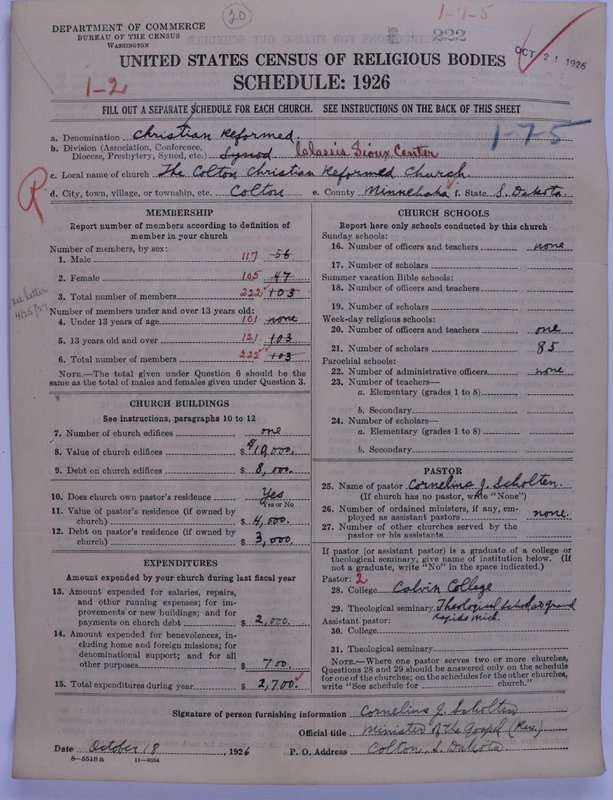 20
1-7-5
222
DEPARTMENT OF COMMERCE
BUREAU OF THE CENSUS
WASHINGTON
OCT 21 1926
UNITED STATES CENSUS OF RELIGIOUS BODIES
SCHEDULE: 1926
1-2
FILL OUT A SEPARATE SCHEDULE FOR EACH CHURCH. SEE INSTRUCTIONS ON THE BACK OF THIS SHEET
a. Denomination Christian Reformed.
1-7-5
b. Division (Association, Conference, Diocese, Presbytery, Synod, etc.) Synod Classis Sioux Center
c. Local name of church The Colton Christian Reformed Church
d. City, town, village, or township, etc. Colton e. County Minnehaha f. State S. Dakota.
R
see letter
4/25/27
MEMBERSHIP
Report number of members according to definition of
member in your church
Number of members, by sex:
1. Male 117 56
2. Female 105 47
3. Total number of members 222 103
Number of members under and over 13 years old:
4. Under 13 years of age 101 none
5. 13 years old and over 121 103
6. Total number of members 222 103
NOTE.—The total given under Question 6 should be the
same as the total of males and females given under Question 3.
CHURCH BUILDINGS
See instructions, paragraphs 10 to 12
7. Number of church edifices one
8. Value of church edifices $10,000.
9. Debt on church edifices $8,000.
10. Does church own pastor's residence Yes
Yes or No
11. Value of pastor's residence (if owned by
church) $4,000.
12. Debt on pastor's residence (if owned by
church) $3,000.
EXPENDITURES
Amount expended by your church during last fiscal year
13. Amount expended for salaries, repairs,
and other running expenses; for im-
provements or new buildings; and for
payments on church debt $2,000.
14. Amount expended for benevolences, in-
cluding home and foreign missions; for
denominational support; and for all
other purposes $700.
15. Total expenditures during year $2,700.
CHURCH SCHOOLS
Report here only schools conducted by this church
Sunday schools:
16. Number of officers and teachers none
17. Number of scholars
Summer vacation Bible schools:
18. Number of officers and teachers
19. Number of scholars
Week-day religious schools:
20. Number of officers and teachers one
21. Number of scholars 85
Parochial schools:
22. Number of administrative officers none
23. Number of teachers—
a. Elementary (grades 1 to 8)
b. Secondary
24. Number of scholars—
a. Elementary (grades 1 to 8)
b. Secondary
PASTOR
25. Name of pastor Cornelius J. Scholten.
(If church has no pastor, write "None")
26. Number of ordained ministers, if any, em-
ployed as assistant pastors none.
27. Number of other churches served by the
pastor or his assistants
If pastor (or assistant pastor) is a graduate of a college or
theological seminary, give name of institution below. (If
not a graduate, write "No" in the space indicated.)
Pastor: 2
28. College Calvin College
29. Theological seminary Theological School Grand
Rapids Mich.
Assistant pastor:
30. College
31. Theological seminary
NOTE.—Where one pastor serves two or more churches,
Questions 28 and 29 should be answered only on the schedule
for one of the churches; on the schedules for the other churches,
write "See schedule for church."
Signature of person furnishing information Cornelius J. Scholten
Official title Minister of the Gospel (Rev.)
Date October 18, 1926 P. O. Address Colton, S. Dakota
8—5518a 11—9054